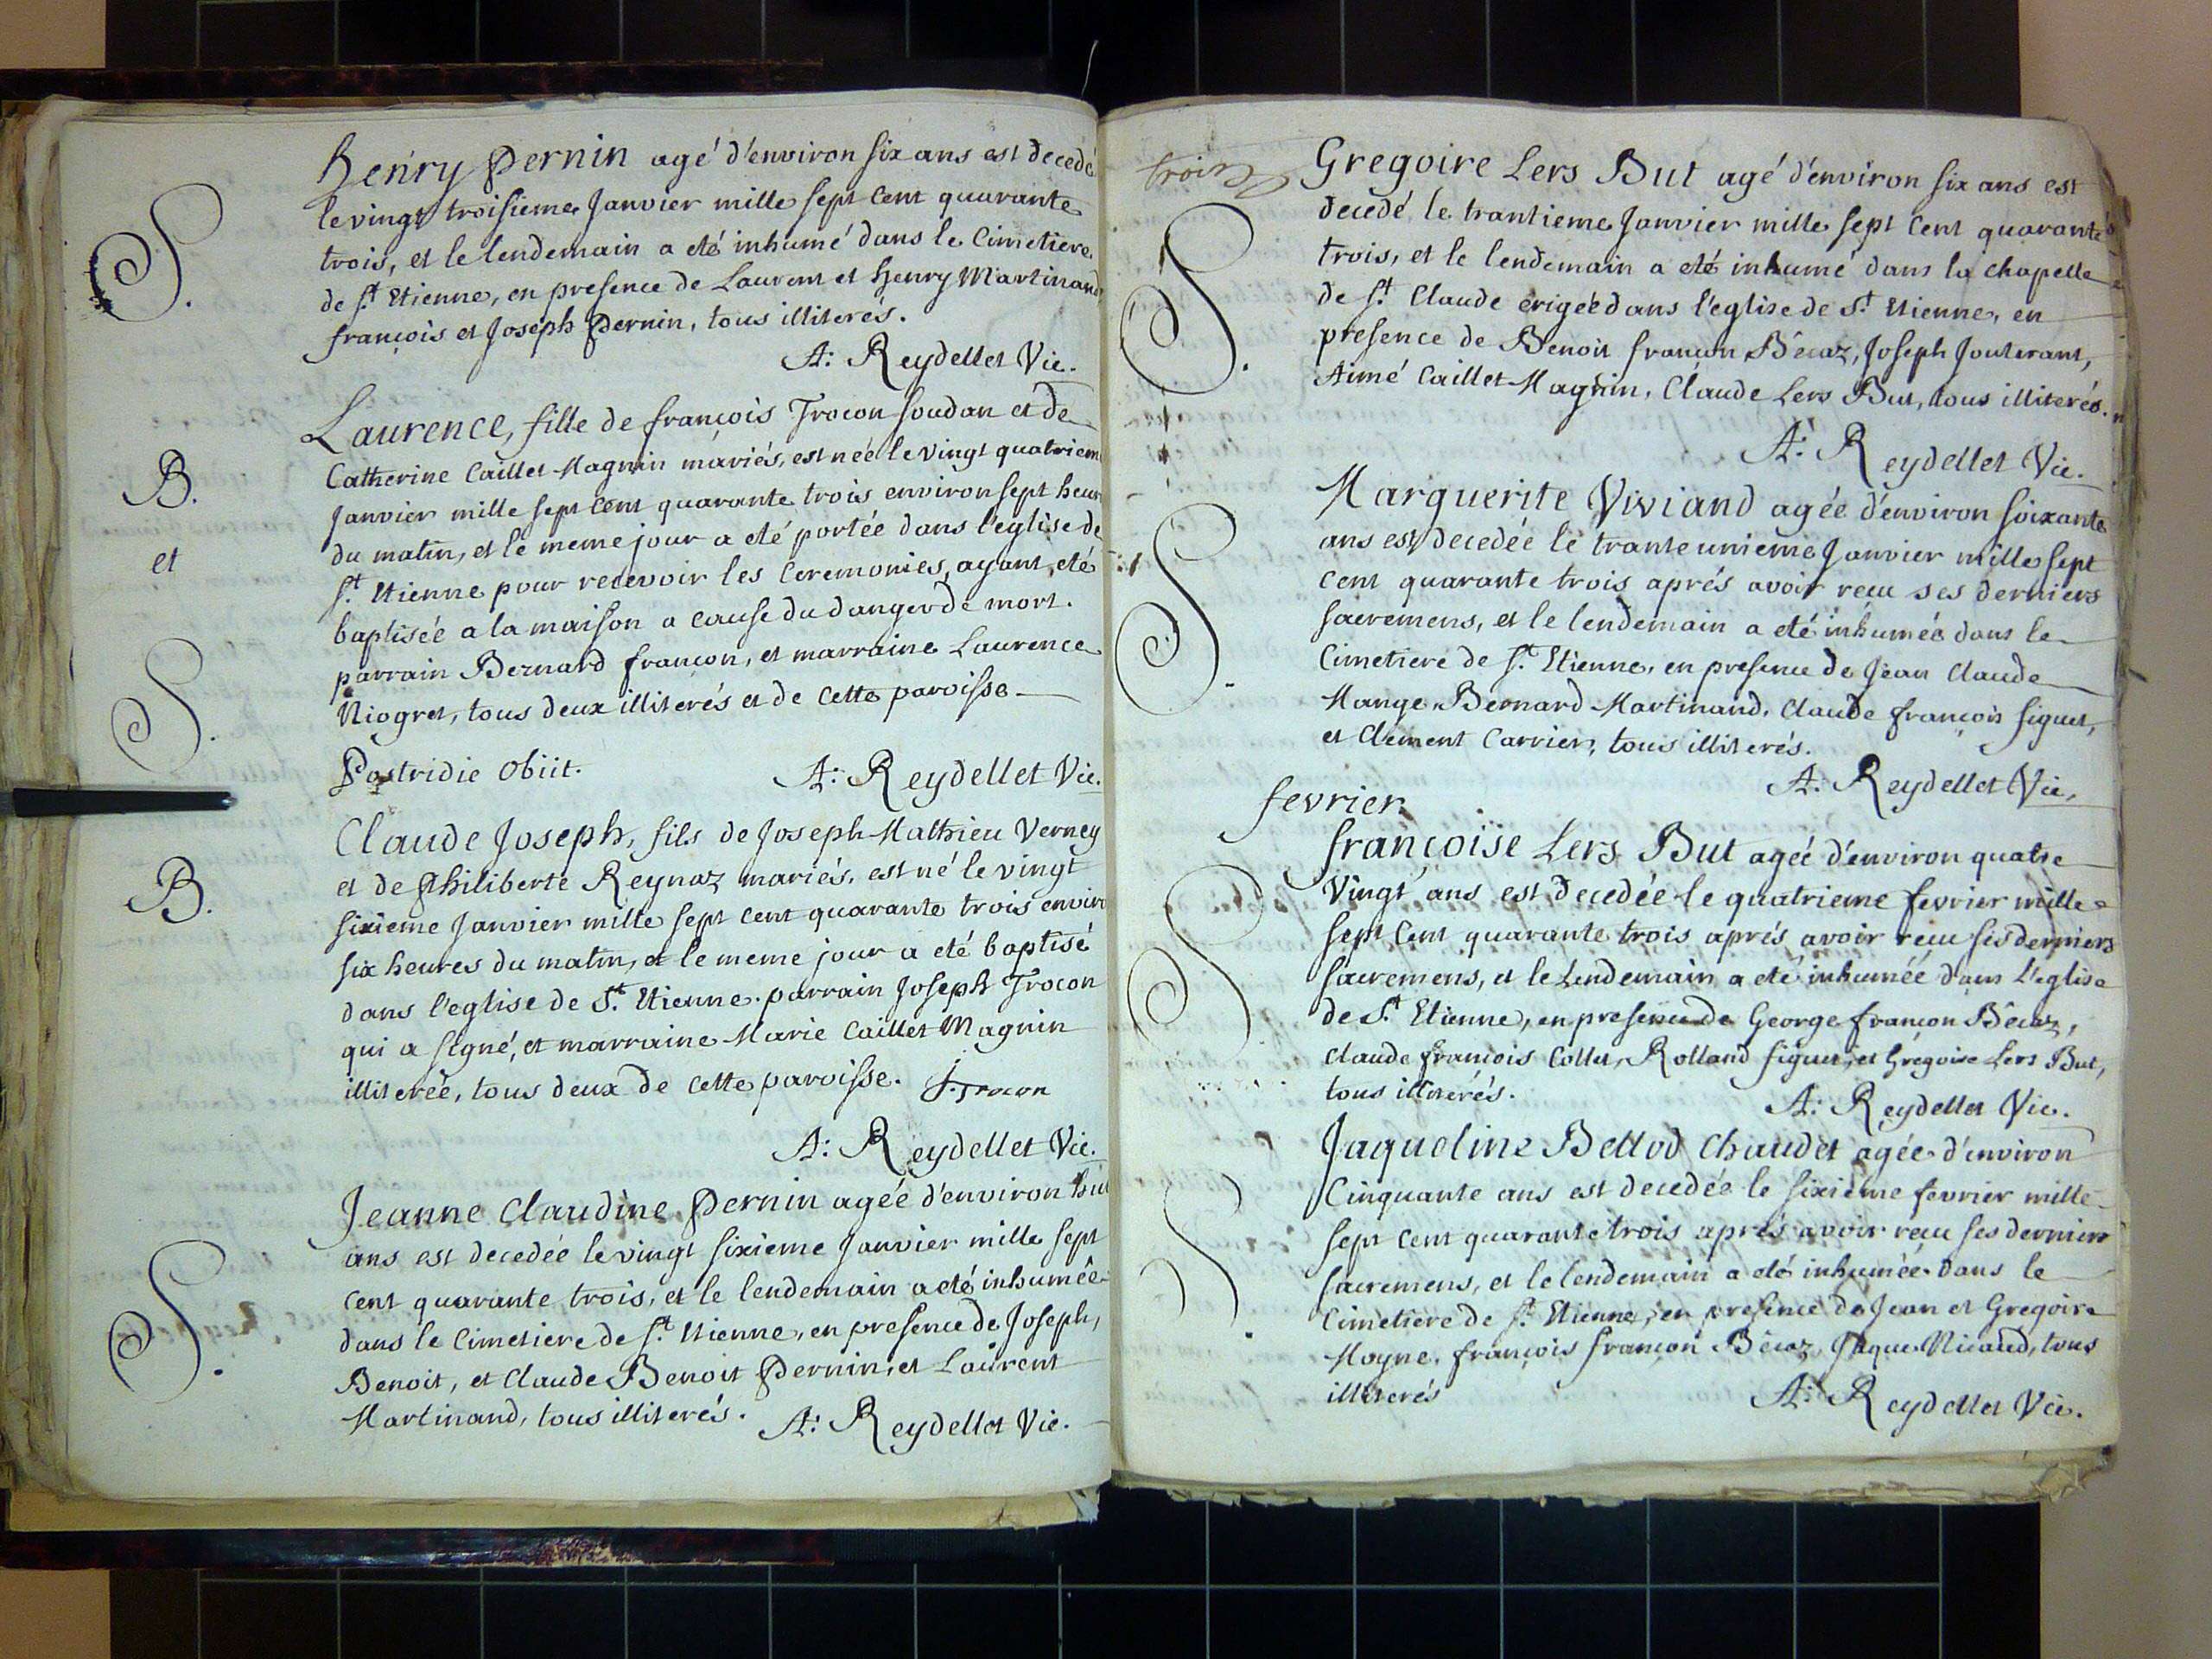 S.
henry Pernin agé d'environ six ans est decedé
le vingt troisieme Janvier mille sept cent quarante
trois, et le lendemain a eté inhumé dans le Cimetiere
de St. Etienne, en presence de Laurent et henry Martinand
françois et Joseph Pernin, tous illiterés.
A: Reydellet Vic.
B.
et
S.
Laurence, fille de françois Trocon Soudan et de
Catherine Caillet Magnin mariés, est née le vingt quatriem
Janvier mille sept cent quarante trois environ sept heur
du matin, et le meme jour a eté portée dans l'eglise de
St. Etienne pour recevoir les Ceremonies, ayant eté
baptisée a la maison a cause du danger de mort.
parrain Bernard françon, et marraine Laurence
Niogret, tous deux illiterés et de cette paroisse
Postridie Obiit.
A: Reydellet Vic.
B.
Claude Joseph, fils de Joseph Mathieu Verney
et de philiberte Reynaz mariés, est né le vingt
sixieme Janvier mille sept cent quarante trois enviro
six heures du matin, et le meme jour a eté baptisé
dans l'eglise de St. Etienne. parrain Joseph Trocon
qui a signé, et marraine Marie Caillet Magnin
illiterée, tous deux de cette paroisse. J. Trocon
A: Reydellet Vic.
S.
Jeanne Claudine Pernin agée d'environ hui
ans est decedée le vingt sixieme Janvier mille sept
cent quarante trois, et le lendemain a eté inhumée
dans le Cimetiere de St. Etienne, en presence de Joseph,
Benoit, et Claude Benoit Pernin, et Laurent
Martinand, tous illiterés.
A: Reydellet Vic.
trois
S.
Gregoire Lers But agé d'environ six ans est
decedé le trantieme Janvier mille sept cent quarante
trois, et le lendemain a eté inhumé dans la chapelle
de St. Claude érigée dans l'eglise de St. Etienne, en
presence de Benoit françon Bêcaz, Joseph Jouterant,
Aimé Caillet Magnin, Claude Lers But, tous illiterés.
A: Reydellet Vic.
S.
Marguerite Viviand agée d'environ soixante
ans est decedée le trante unieme Janvier mille sept
cent quarante trois aprés avoir recu ses derniers
sacremens, et le lendemain a eté inhumée dans le
Cimetiere de St. Etienne, en presence de Jean Claude
Mange, Bernard Martinand, Claude françois figuet,
et Clement Carrier, tous illiterés.
A: Reydellet Vic.
fevrier
S.
françoise Lers But agée d'environ quatre
Vingt ans est decedée le quatrieme fevrier mille
sept cent quarante trois aprés avoir recu ses derniers
sacremens, et le lendemain a eté inhumée dans l'eglise
de St. Etienne, en presence de George françon Bêcaz,
Claude françois Collet, Rolland figuet, et Gregoire Lers But,
tous illiterés.
A: Reydellet Vic.
S.
Jaqueline Bellod Chaudet agée d'environ
Cinquante ans est decedée le sixieme fevrier mille
sept cent quarante trois aprés avoir recu ses derniers
sacremens, et le lendemain a eté inhumée dans le
Cimetiere de St. Etienne, en presence de Jean et Gregoire
Moyne, françois françon Bêcaz, Jaque Nicaud, tous
illiterés
A: Reydellet Vic.